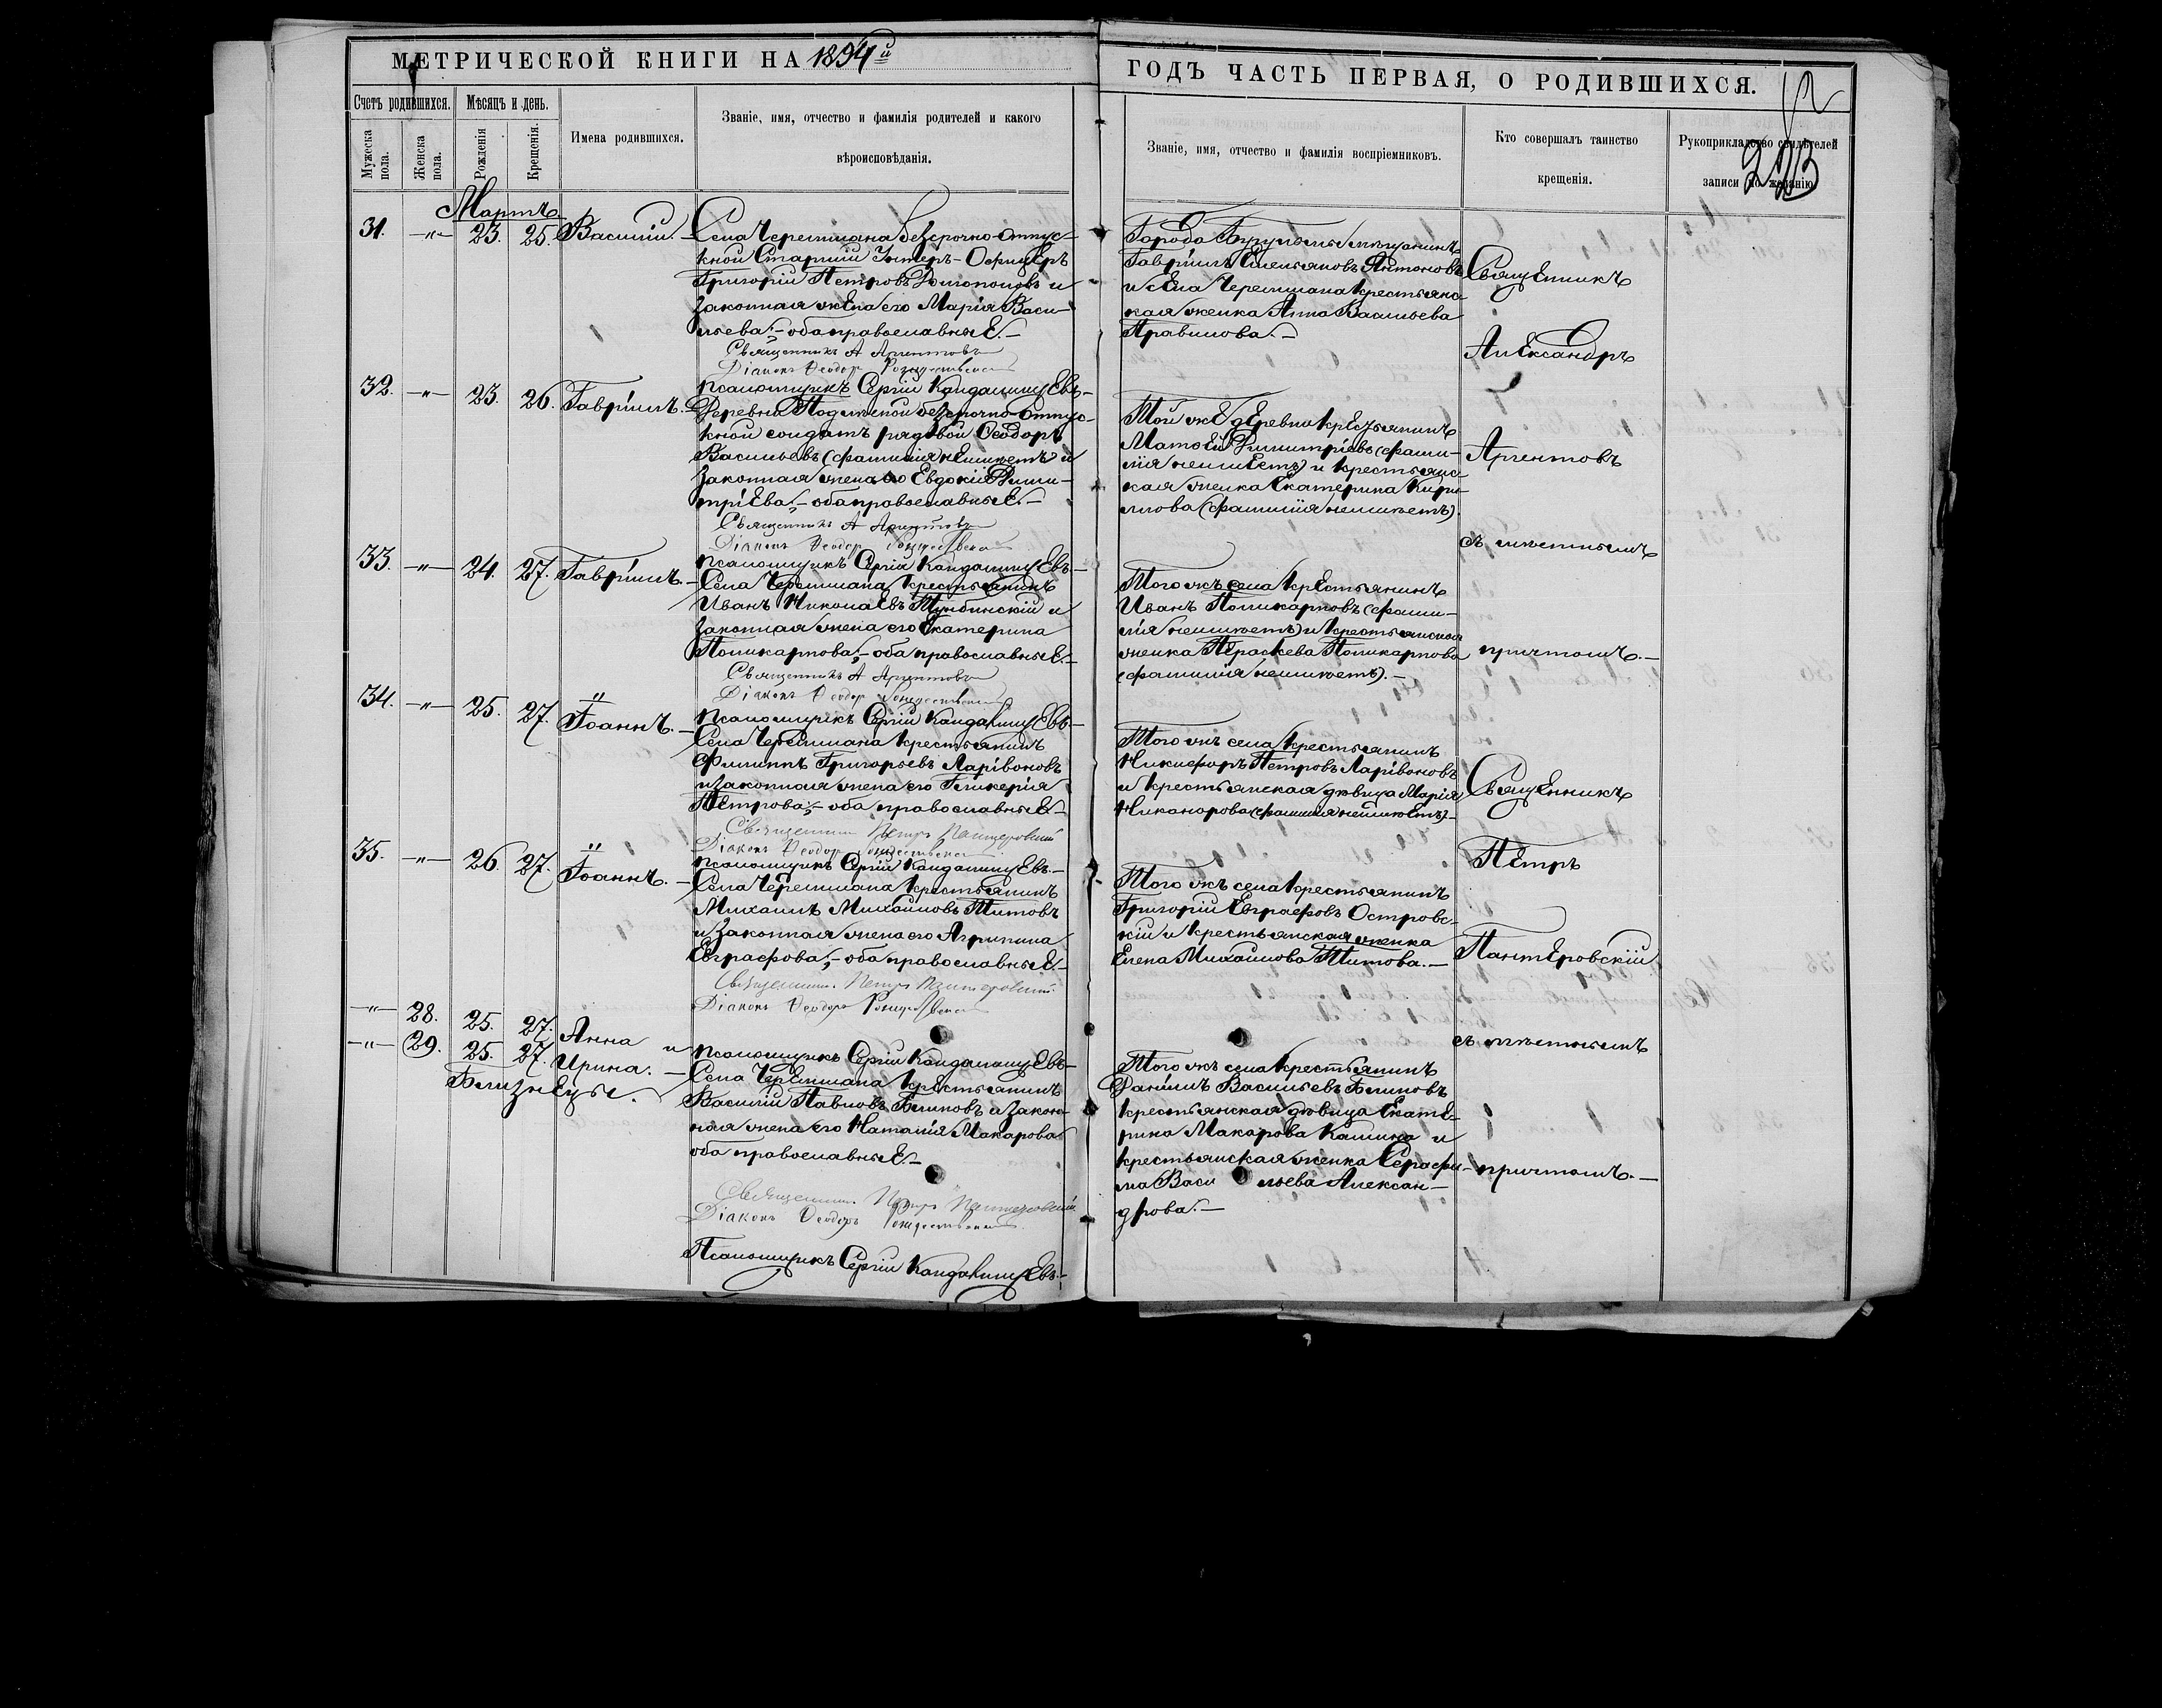 МЕТРИЧЕСКОЙ КНИГИ НА 1894й
ГОДЪ ЧАСТЬ ПЕРВАЯ, О РОДИВШИХСЯ.
Счетъ родившихся.
Мужеска пола.
Женска пола.
Мѣсяцъ и день.
Рожденія
Крещенія.
Имена родившихся.
Званіе, имя, отчество и фамилія родителей и какого
вѣроисповѣданія.
Званіе, имя, отчество и фамилія воспріемниковъ.
Кто совершалъ таинство
крещенія.
Рукоприкладство свидѣтелей
записи по желанію
Мартъ
31. -"- 23. 25. Василій.
Села Черемшана безсрочно-отпус-
кной Старшій Унтеръ-Офицеръ
Григорій Петровъ и
законная жена его Марія Васи-
льева, – оба православные. –
Священникъ А Аргентовъ
Діаконъ Ѳеодоръ Рождественскій
Псаломщикъ Сергій Кандалинцевъ. –
Города Бугульмы мѣщанинъ
Гавріилъ Емельяновъ Антоновъ
и села Черемшана крестьянс
кая женка Анна Васильева
Правилова. –
Священникъ
Александръ
Аргентовъ
съ мѣстнымъ
причтомъ. –
32. -"- 23. 26. Гавріилъ. –
Деревни безсрочно-отпус-
кной солдатъ рядовой Ѳеодоръ
Васильевъ (фамиліи не имѣетъ) и
законная жена его Евдокія Дими-
тріева, – оба православные. –
Священникъ А Аргентовъ
Діаконъ Ѳеодоръ Рождественскій
Псаломщикъ Сергій Кандалинцевъ. –
Той же деревни крестьянинъ
Матѳей Димитріевъ (фами-
лія неимѣетъ) и крестьянс
кая женка Екатерина Кири-
ллова (фамилія неимѣетъ).
33. -"- 24. 27. Гавріилъ. –
Села Черемшана крестьянинъ
Иванъ Николаевъ и
законная жена его Екатерина
Поликарпова, – оба православные. –
Священникъ А Аргентовъ
Діаконъ Ѳеодоръ Рождественскій
Псаломщикъ Сергій Кандалинцевъ. –
Того жъ села крестьянинъ
Иванъ Поликарповъ (фами-
лія неимѣетъ) и крестьянская
женка Параскева Поликарпова
(фамилія неимѣетъ). –
34. -"- 25. 27. Іоаннъ. –
Села Черемшана крестьянинъ
Филиппъ Григорьевъ Ларіоновъ
и законная жена его Гликерія
Петрова, – оба православные –
Священникъ Петръ Пантеровскій
Діаконъ Ѳеодоръ Рождественскій
Псаломщикъ Сергій Кандалинцевъ. –
Того жъ села крестьянинъ
Никифоръ Петровъ Ларіоновъ
и крестьянская дѣвица Марія
Никанорова (фамилія неимѣетъ). –
Священникъ
Петръ
Пантеровскій
съ мѣстнымъ
причтомъ. –
35. -"- 26. 27. Іоаннъ. –
Села Черемшана крестьянинъ
Михаилъ Михайловъ Титовъ
и законная жена его Агрипина
Евграфова, – оба православные. –
Священникъ Петръ Пантеровскій
Діаконъ Ѳеодоръ Рождественскій
Псаломщикъ Сергій Кандалинцевъ
Того жъ села крестьянинъ
Григорій Евграфовъ Островс-
кій и крестьянская женка
Елена Михайлова Титова. –
-"- 28. 25. 27. Анна и
-"- 29. 25. 27. Ирина. –
Близнецы.
Села Черемшана крестьянинъ
Василій Павловъ Блиновъ и закон-
ная жена его Наталія Макарова
оба православные. –
Священникъ Петръ Пантеровскій
Діаконъ Ѳеодоръ Рождественскій
Псаломщикъ Сергій Кандалинцевъ. –
Того жъ села крестьянинъ
Даніилъ Васильевъ Блиновъ
крестьянская дѣвица Екате-
рина Макарова Кашина и
крестьянская женка Серафи-
ма Васильева Алексан-
дрова. –